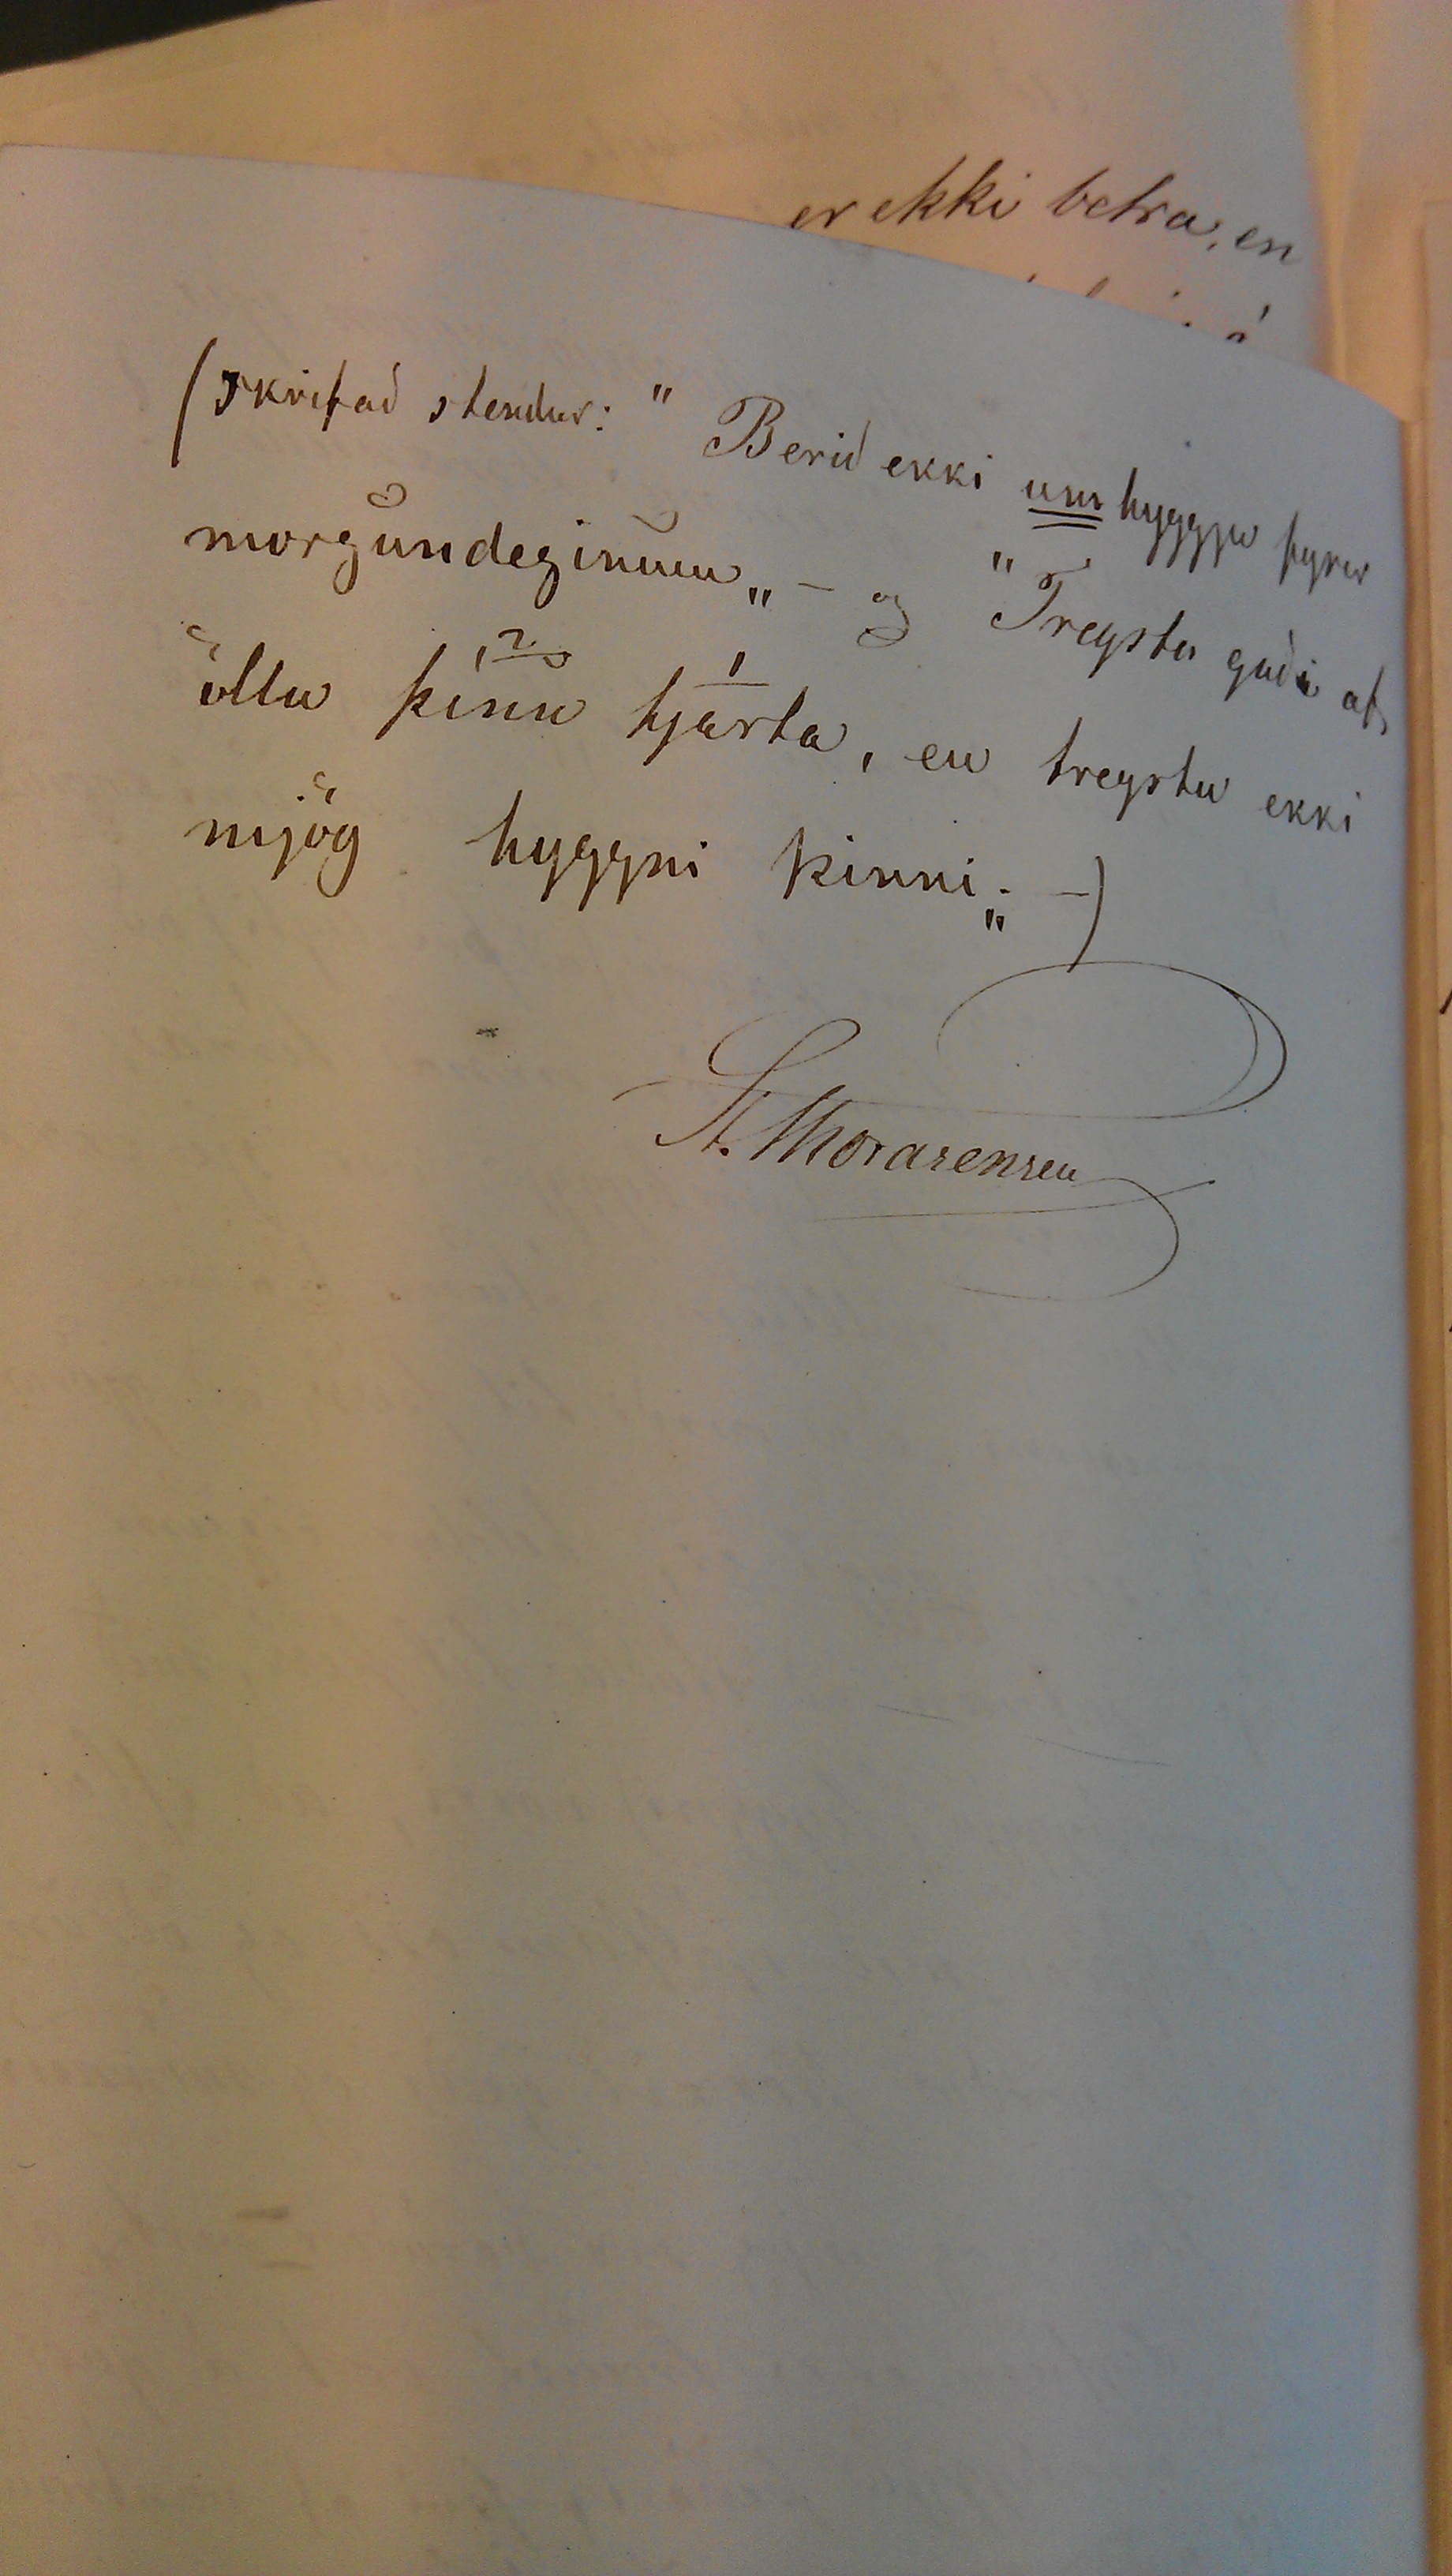 er ekki betra, en
(Skrifað stendur: " Berið ekki umhyggju fyrir
morgundeginum„ – og "Treystu guði af
öllu þínu hjarta, en treystu ekki
mjög hyggni þinni„. –)
St. Thorarensen